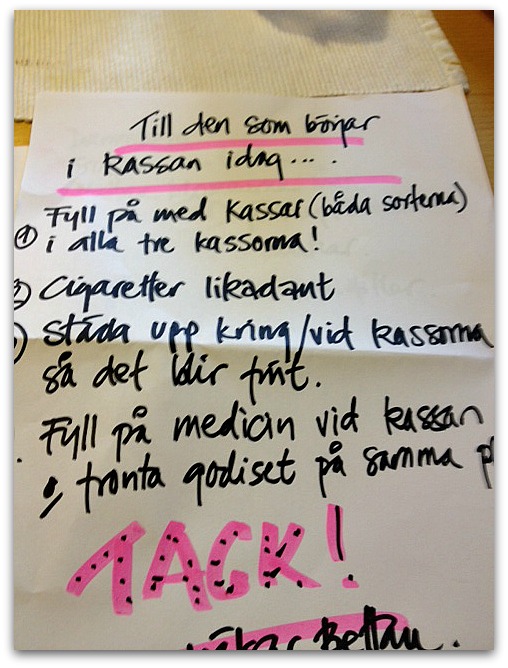 Till den som börjar
i kassan idag... .
Fyll på med kassar (båda sorterna)
① i alla tre kassorna!
② Cigaretter likadant
) Städa upp kring/vid kassorna
så det blir fint.
. Fyll på medicin vid kassan
& fronta godiset på samma p
TACK!
Bettan.